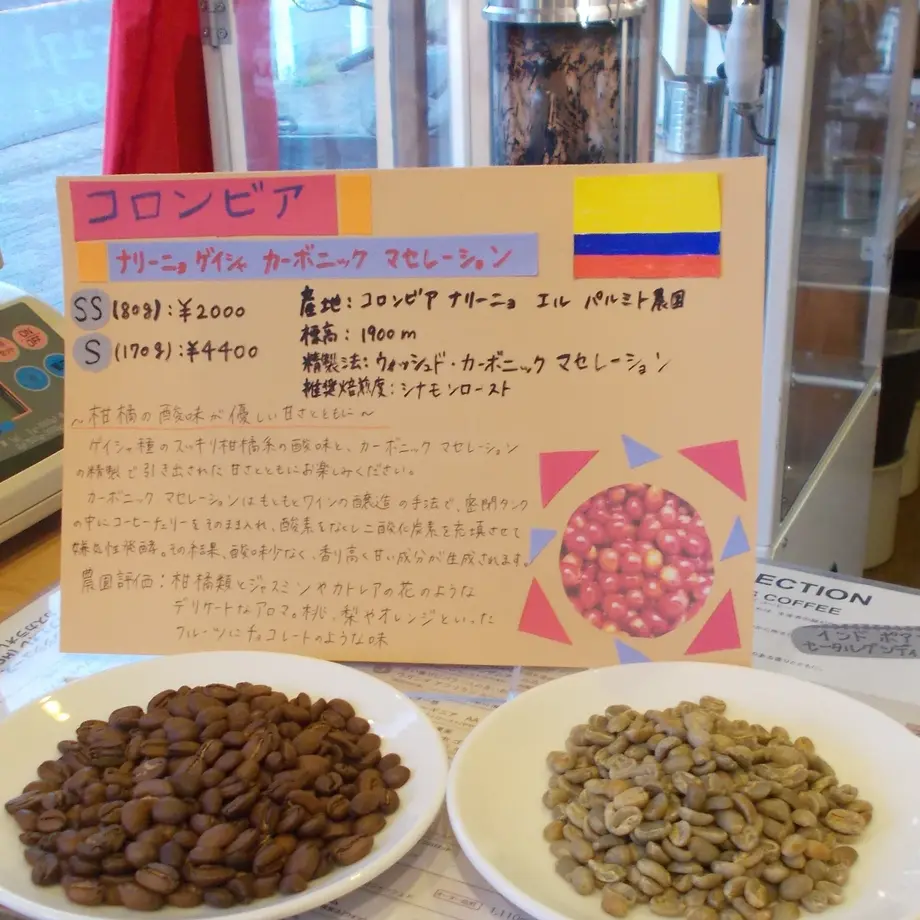 コロンビア
ナリーニョ ゲイシャ カーボニック マセレーション
SS (80g):¥2000
S (170g):¥4400
産地:コロンビア ナリーニョ エル パルミト農園
標高:1900m
精製法:ウォッシュド・カーボニック マセレーション
推奨焙煎度:シナモンロースト
~柑橘の酸味が優しい甘さとともに~
ゲイシャ種のスッキリ柑橘系の酸味と、カーボニック マセレーション
の精製で引き出された甘さとともにお楽しみください。
カーボニック マセレーションはもともとワインの醸造の手法で、密閉タンク
の中にコーヒーチェリーをそのまま入れ、酸素をなくし二酸化炭素を充填させて
嫌気性発酵。その結果、酸味少なく、香り高く甘い成分が生成されます。
農園評価:柑橘類とジャスミンやカトレアの花のような
デリケートなアロマ。桃、梨やオレンジといった
フルーツにチョコレートのような味
ECTION
COFFEE
インド